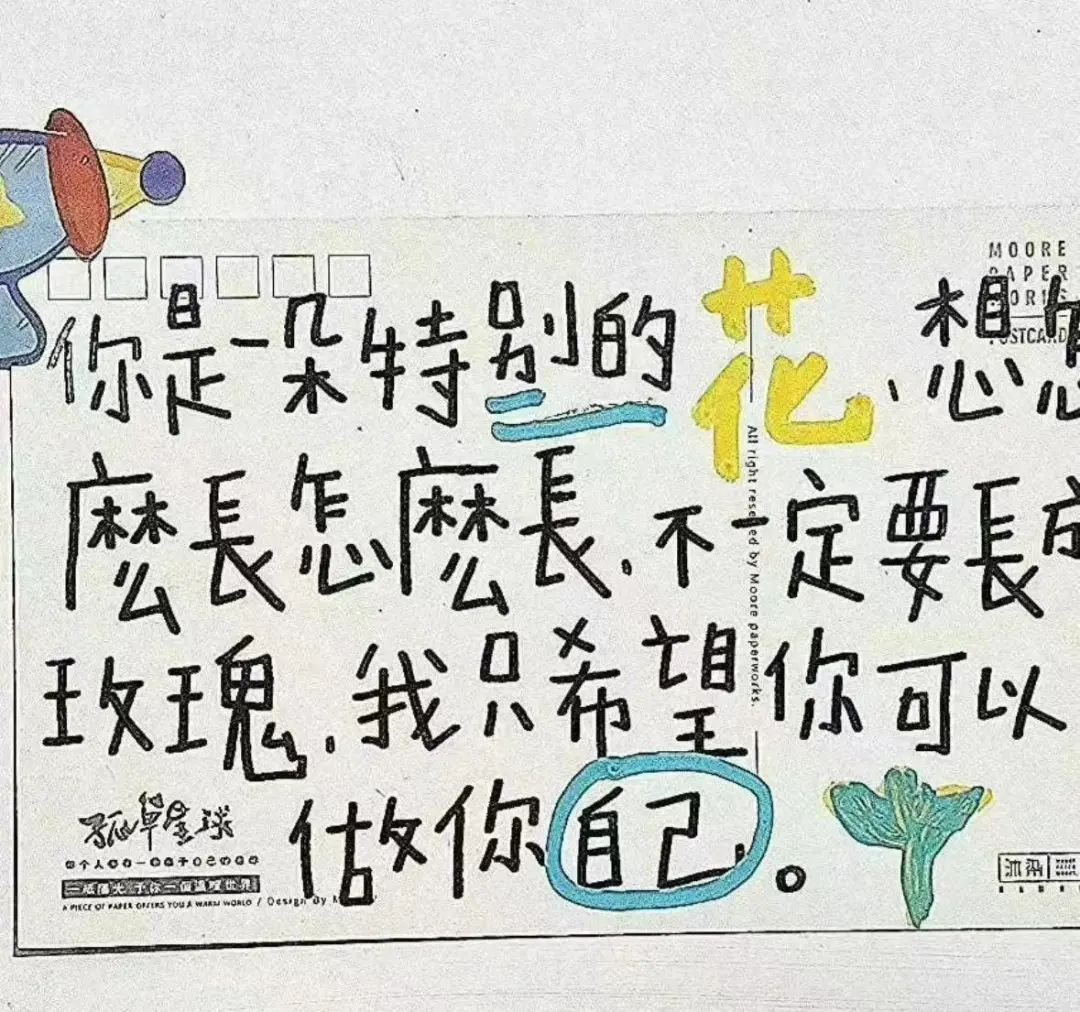 MOORE
PAPER
STORIES
POSTCARD
你是一朵特别的花,想怎
麽長怎麽長,不一定要長成
玫瑰,我只希望你可以
做你自己。
All right reserved by Moore paperworks.
孤單星球
一紙陽光 予你一個溫暖世界
A PIECE OF PAPER OFFERS YOU A WARM WORLD / Design By